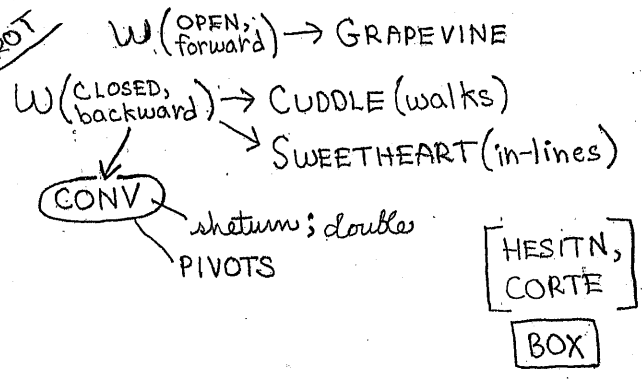 ROT
W (OPEN, forward) → GRAPEVINE
W (CLOSED, backward) → CUDDLE (walks)
→ SWEETHEART (in-lines)
CONV
sheturn; double
PIVOTS
[HESITN,
CORTE]
BOX